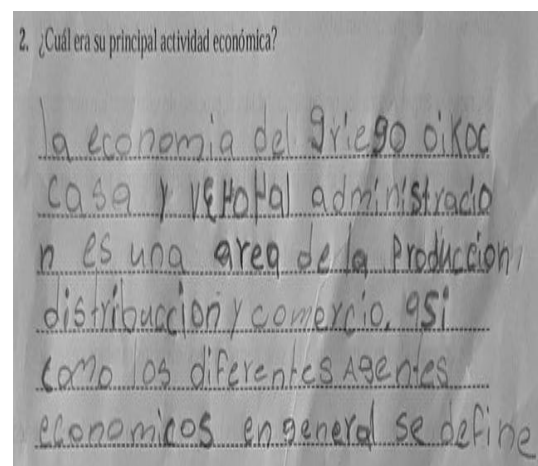 2. ¿Cuál era su principal actividad económica?
la economia del griego oikoc
casa y veHoHal administracio
n es una area de la Produccion,
distribuccion y comercio, asi
como los diferentes Agentes
economicos en general se define